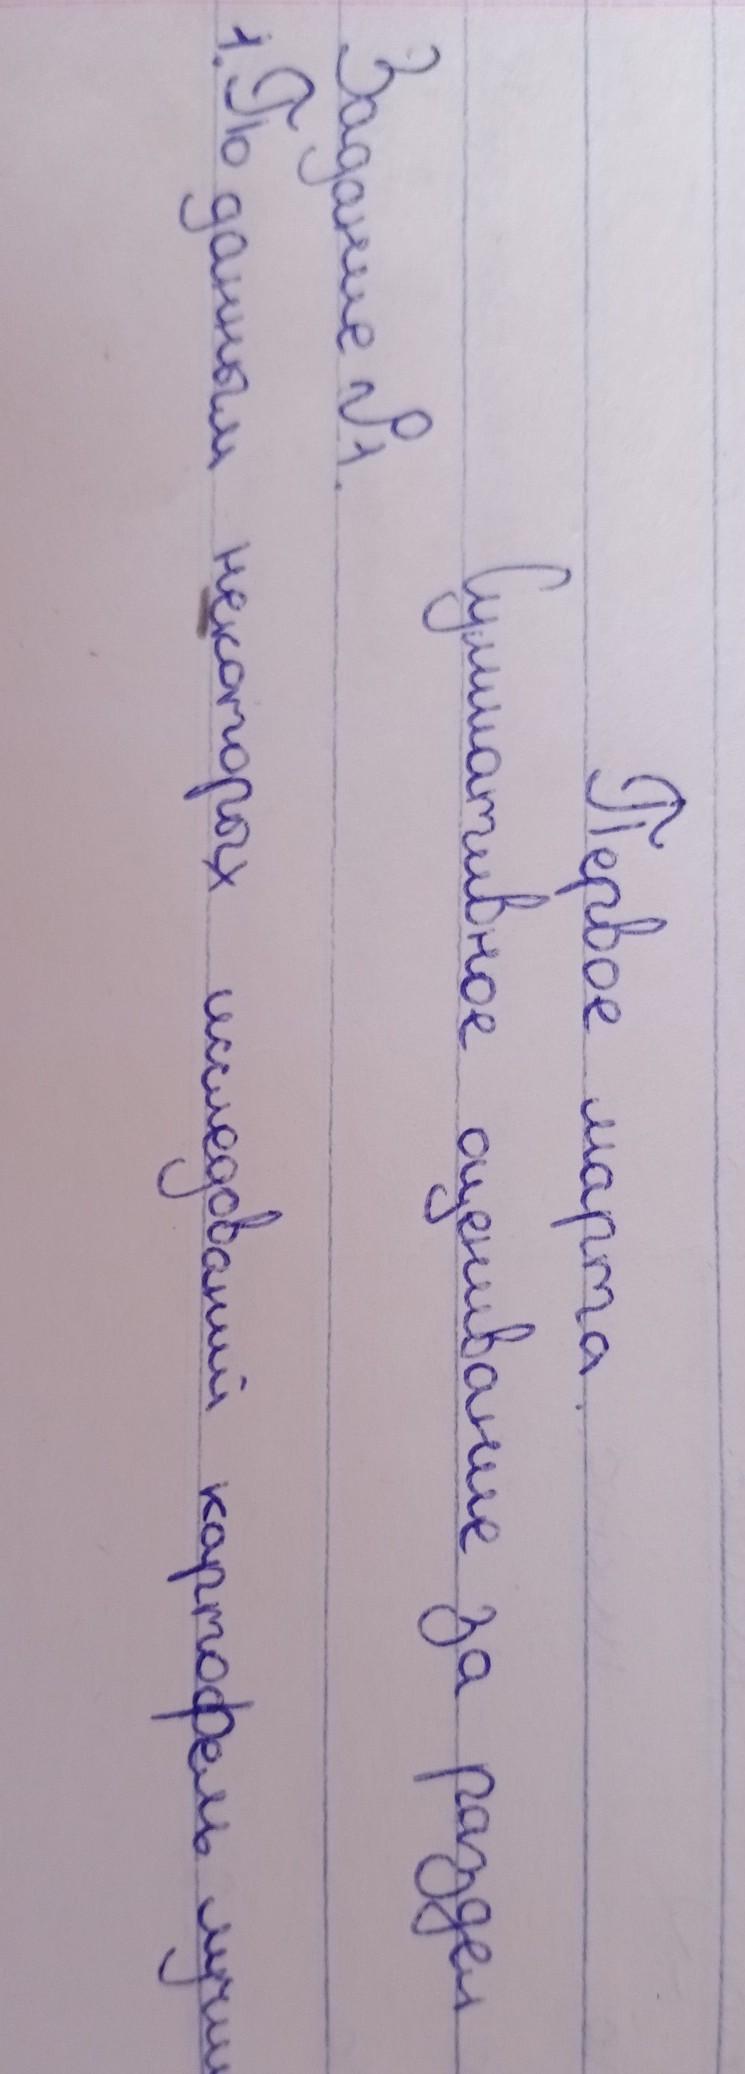 Первое марта.
Суммативное оценивание за раздел
Задание №1.
1. По данным некоторых исследований картофель